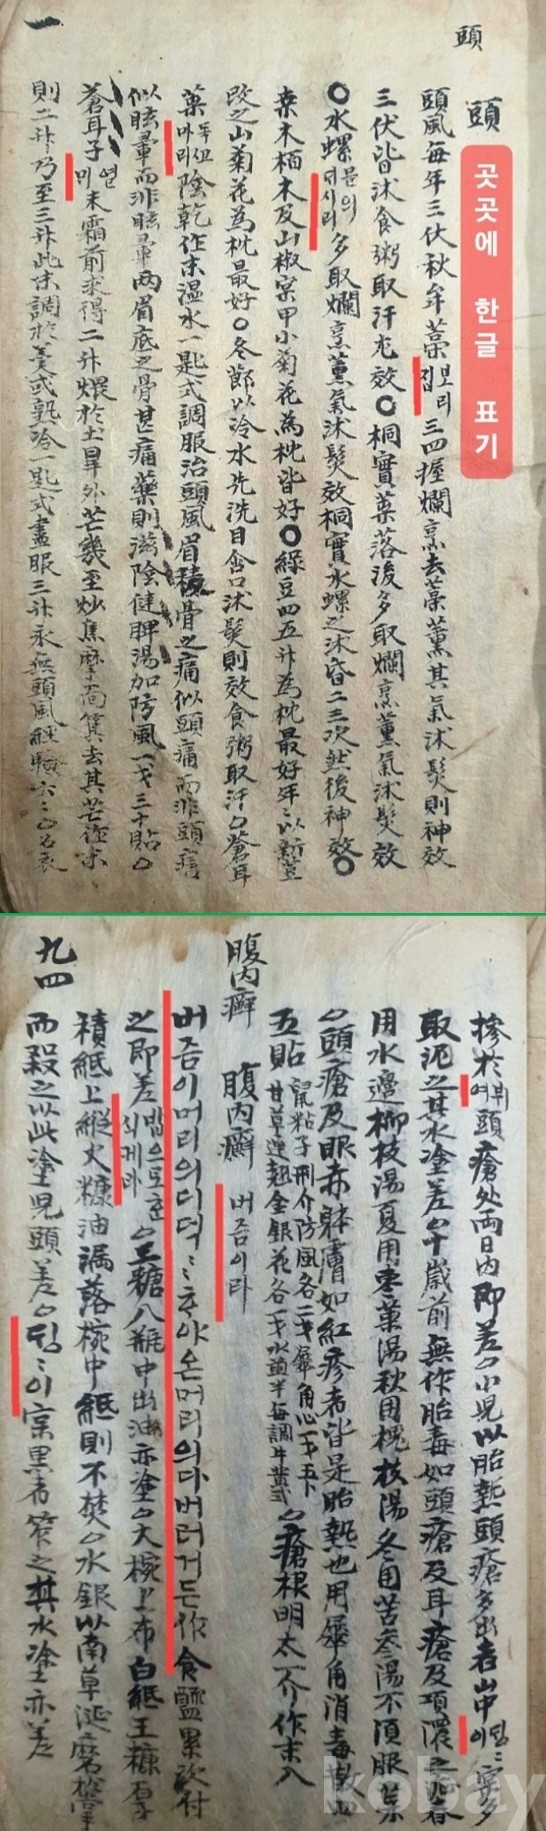 頭
一
곳곳에 한글 표기
頭
頭風每年三伏秋牟藁 보리집 三四握爛烹去藁薰其氣沐髮則神效
三伏皆沐食粥取汗尤效〇桐實葉落後多取爛烹薰氣沐髮效
〇水螺 믈의 多取爛烹薰氣沐髮效桐實水螺之沐昏二三次然後神效〇
桑木栢木及山椒實甲小菊花爲枕皆好〇綠豆四五升爲枕最好年〻以新荳
改之山菊花爲枕最好〇冬節以冷水先洗目含口沐髮則效食粥取汗〇蒼耳
葉 陰乾作末溫水一匙式調服治頭風眉稜骨之痛似頭痛而非頭痛
似眩暈而非眩暈兩眉底之骨甚痛藥則滋陰健脾湯加防風一戔三十貼〇
蒼耳子 末霜前求得二升煨於土旱外芒幾至炒焦摩 箕去其芒作末
則二升乃至三升此末調於羹或熟冷一匙式盡服三升永無頭風
九四
腹內癖
摻於 頭瘡處兩日內卽差〇小兒以胎熱頭瘡多出者山中 實多
取泥之其水塗差〇十歲前無作胎毒如頭瘡及耳瘡及項 春
用水邊柳枝湯夏用棗葉湯秋用槐枝湯冬用苦參湯不須服藥
〇頭瘡及眼赤 膚如紅疹者皆是胎熱也用犀角消毒
五貼 鼠粘子荊介防風各二戔犀角心一戔五卜 甘草連翹金銀花各一戔水 半每調牛黃式 〇瘡根明太一介作末入
腹內癖 버즘이라
버즘이머리의디덕〻〻 야온머리의다버러거든作食鹽累次付
之卽差 밥으로 〇 糖八瓶中出油亦塗〇大椀上布白紙玉糠厚
積紙上縱火糠油漏落椀中紙則不焚〇水銀以南草涎磨
而殺之以此塗兒頭差〇 이實黑者窄之其水塗亦差
kobay